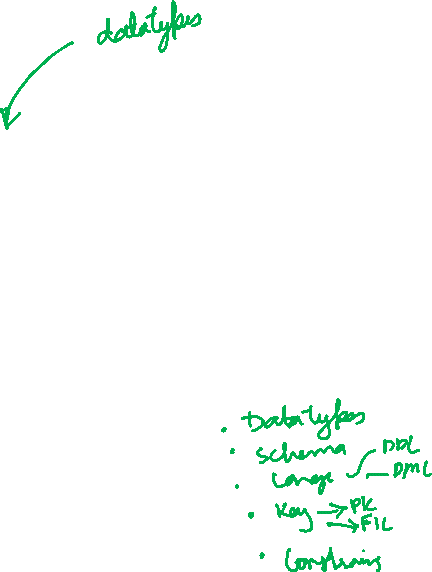 datatypes
• Datatypes
• Schema
• Lange DDL
DML
• Key → PK
→ FK
• Constrains